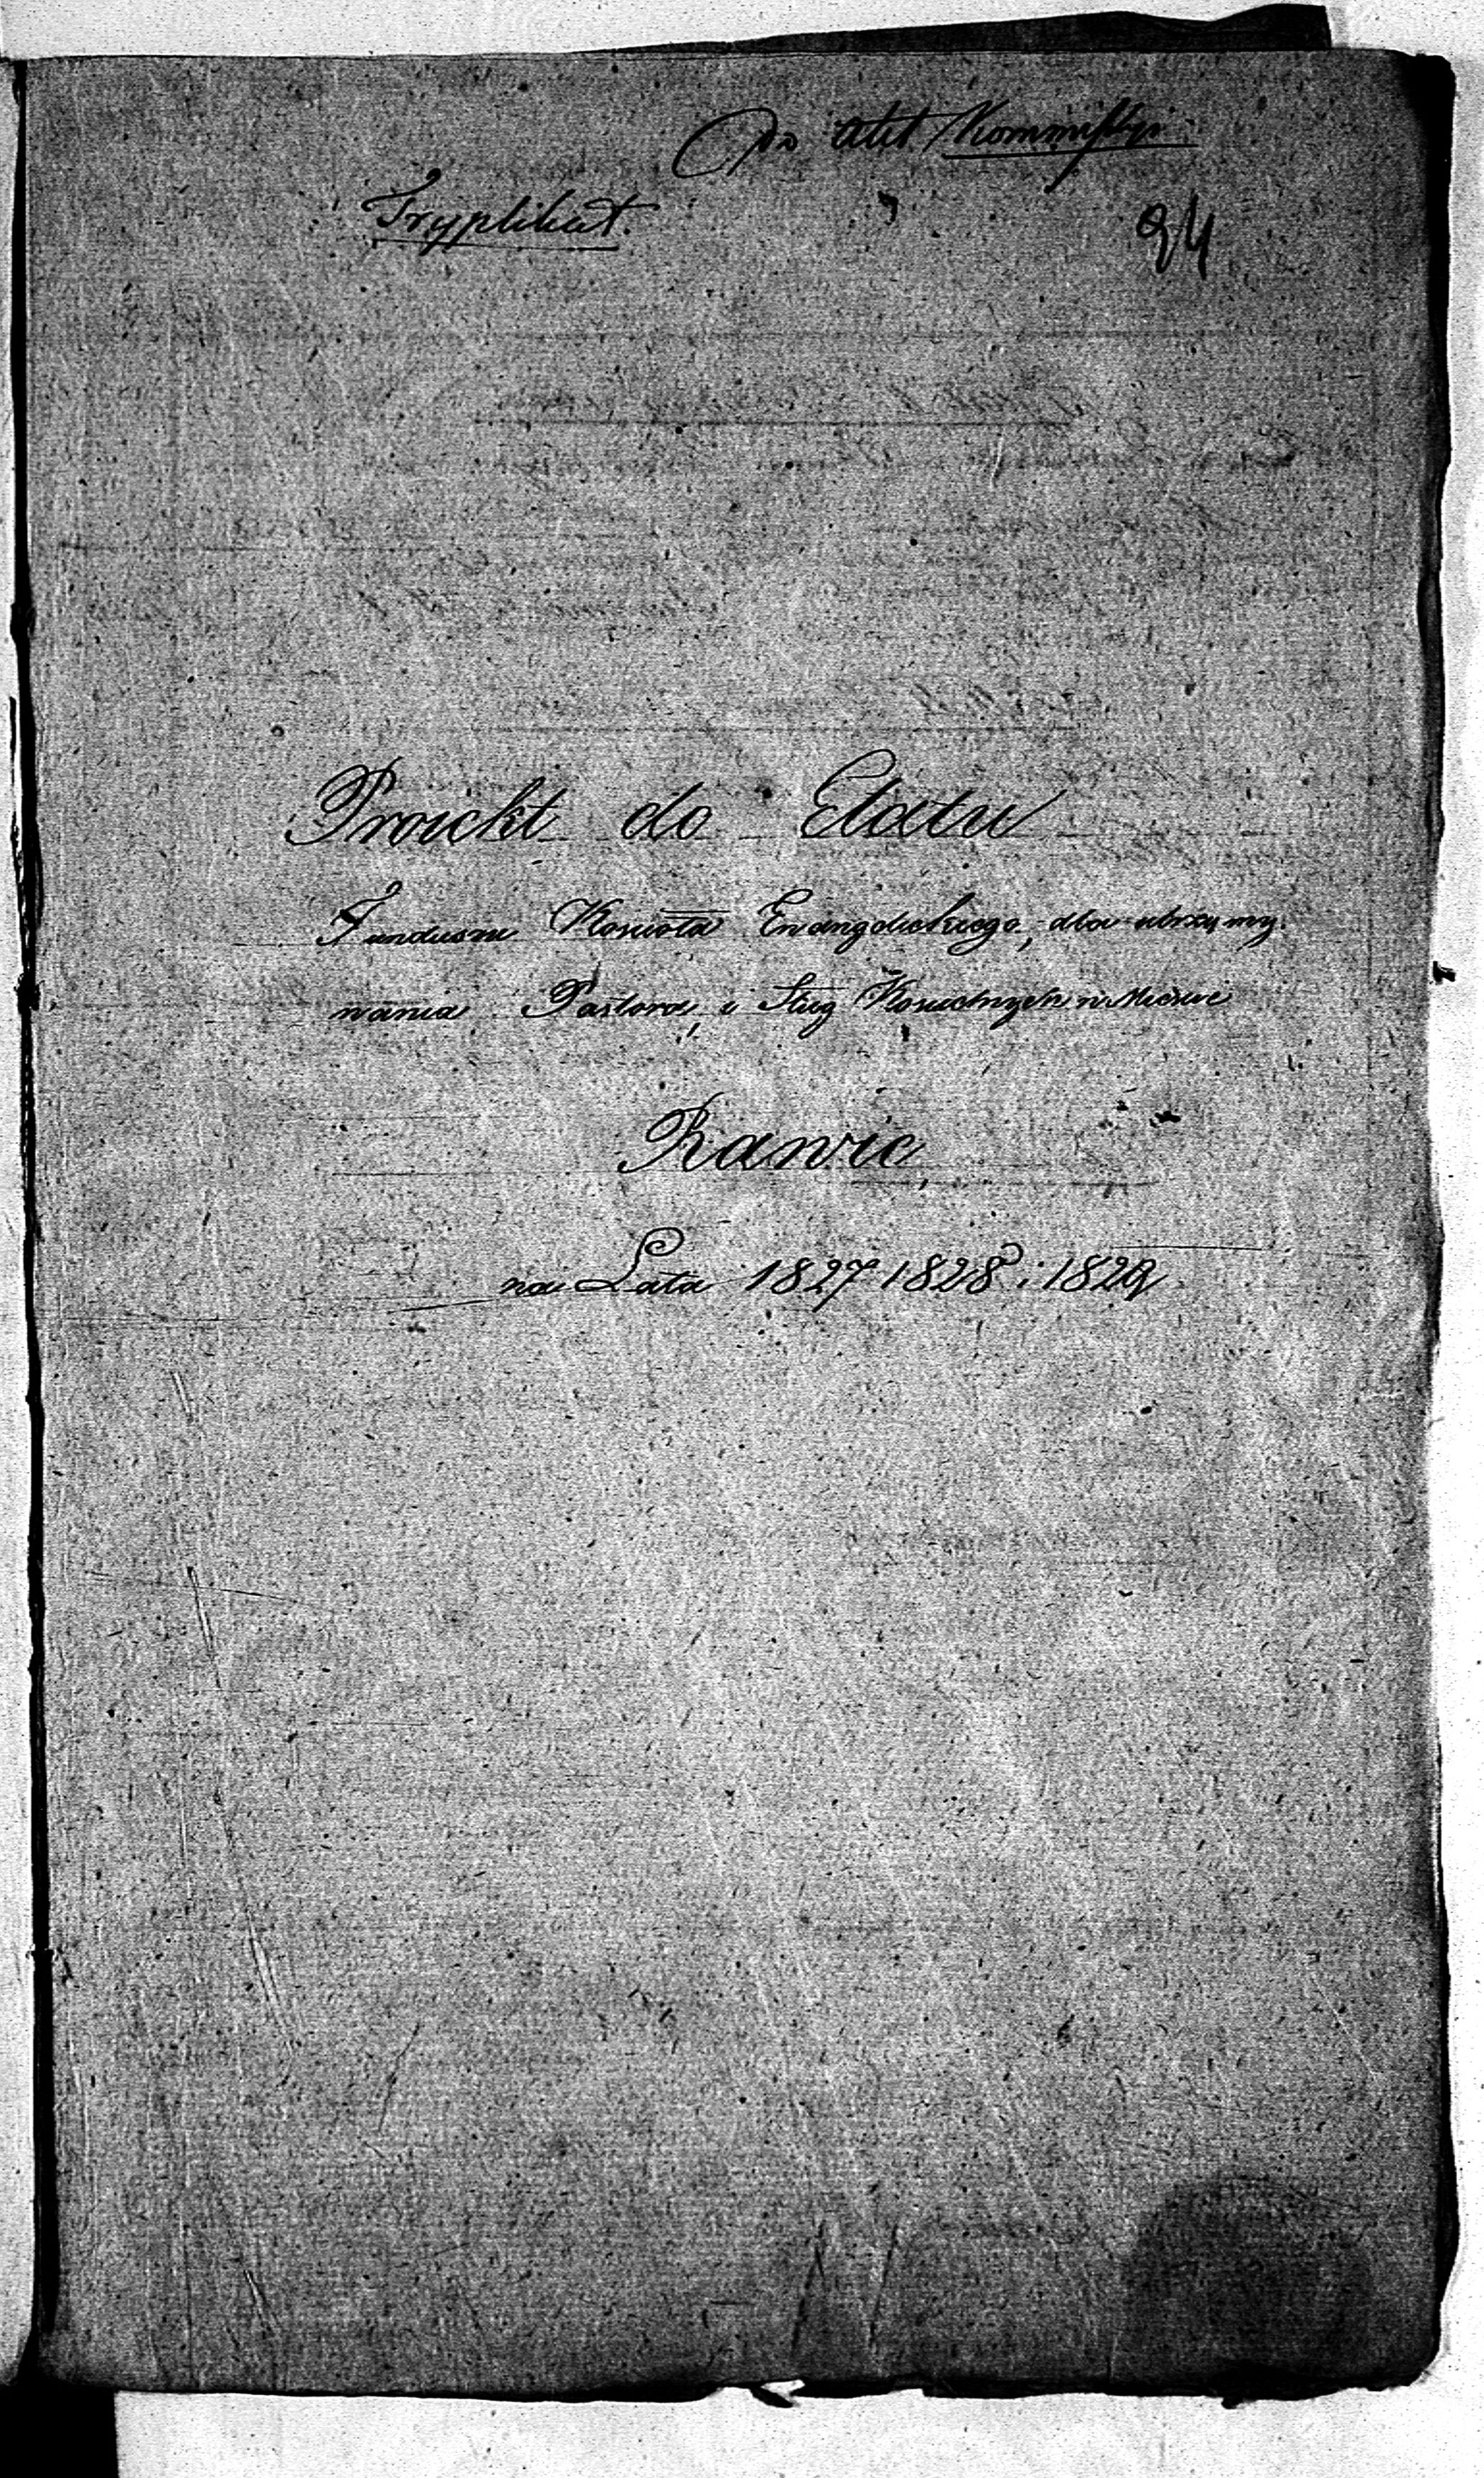 Do Akt Kommissyi
Tryplikat.
24
Proiekt do Etatu
Funduszu Koscioła Ewangelickiego, dla utrzymy
wania Pastora i Sług Koscielnych w Miescie
Rawie
na Lata 1827 1828 i 1829